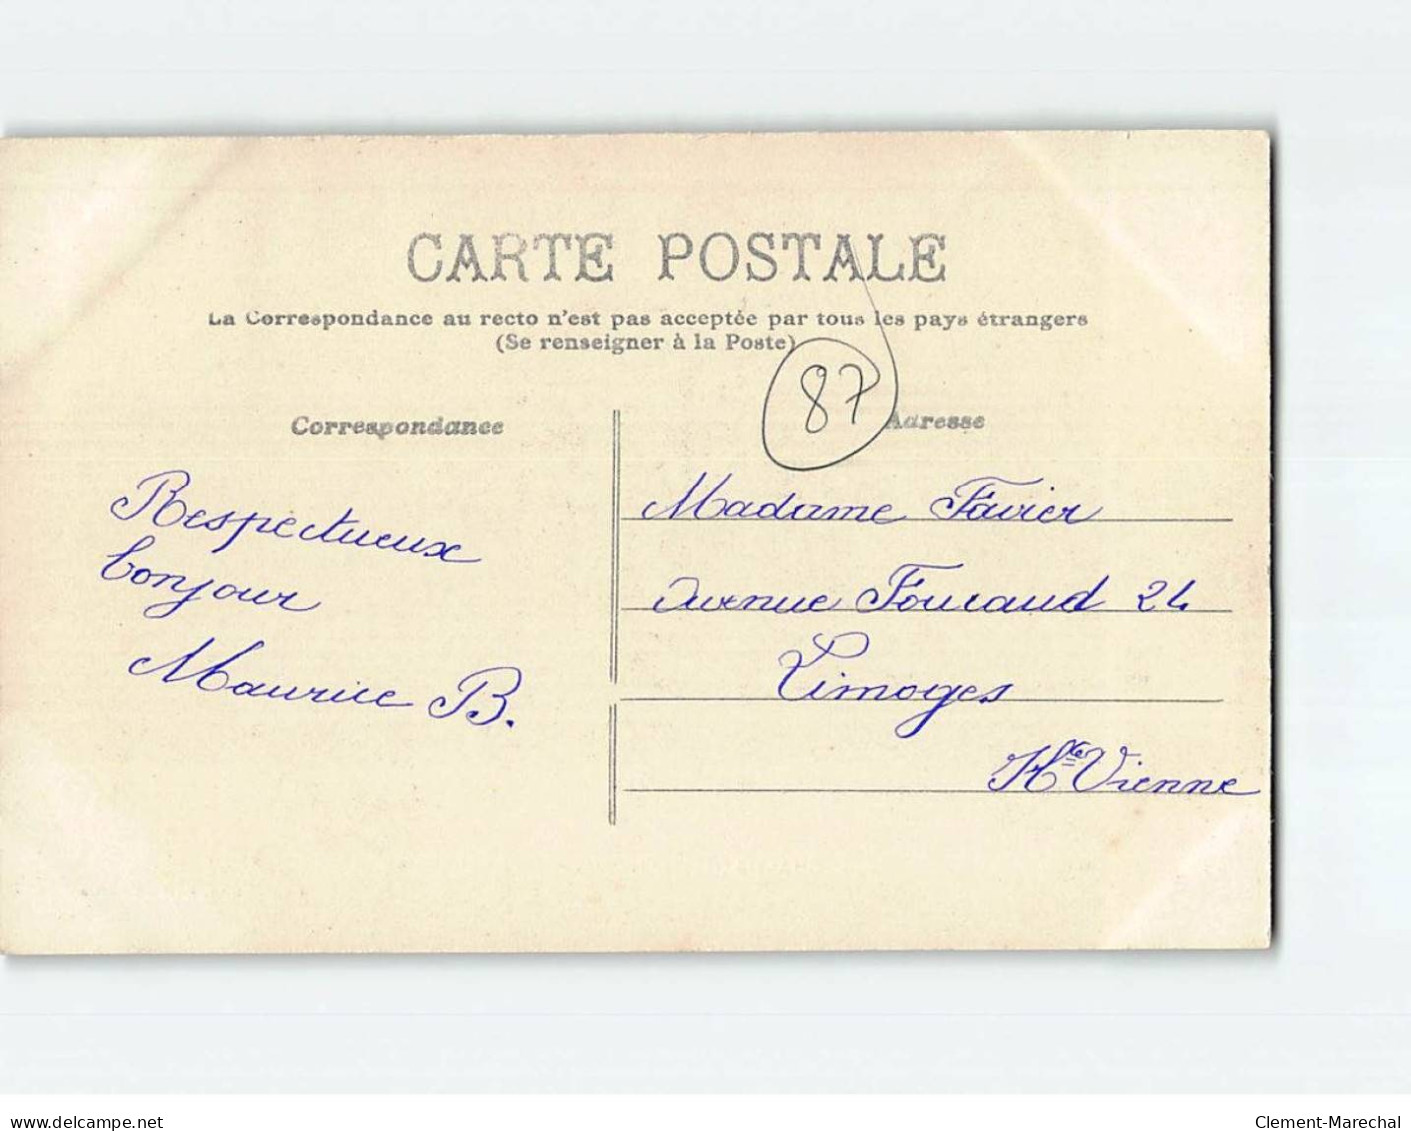 CARTE POSTALE
La Correspondance au recto n'est pas acceptée par tous les pays étrangers
(Se renseigner à la Poste)
87
Correspondance
Respectueux
bonjour
Maurice B.
Adresse
Madame Favier
avenue Foucaud 24
Limoges
Hte Vienne
www.delcampe.net
Clement-Marechal